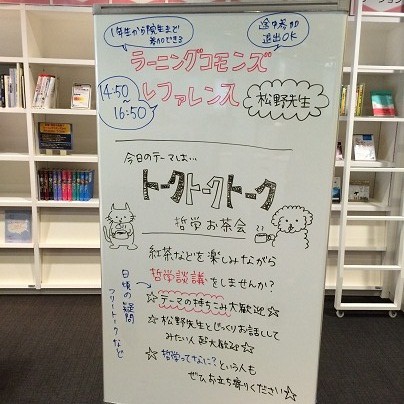 1年生から院生まで
参加できる
途中参加
退出OK
ラーニングコモンズ
レファレンス
松野先生
14:50
～
16:50
今日のテーマは…
トークトークトーク
哲学お茶会
紅茶などを楽しみながら
哲学談議をしませんか？
日頃の疑問
フリートークなど
☆テーマの持ちこみ大歓迎☆
☆松野先生とじっくりお話しして
みたい人も大歓迎☆
☆哲学ってなに？という人も
ぜひお立ち寄りください☆